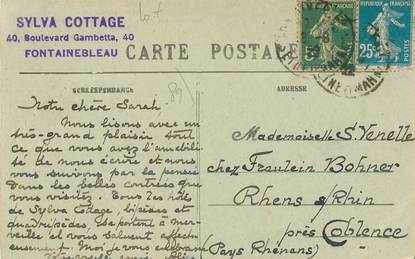 SYLVA COTTAGE
40, Boulevard Gambetta, 40
FONTAINEBLEAU
CARTE POSTALE
CORRESPONDANCE
ADRESSE
RÉPUBLIQUE FRANÇAISE
25c
Notre chère Sarah
Nous lisons avec un
très-grand plaisir tout
ce que vous avez l'amabili-
té de nous écrire et nous
vous suivons par la pensée
Dans les belles contrées que
vous visitez. Tous les hôtes
de Sylva Cottage, bipèdes et
quadrupèdes se portent à mer-
veille et vous saluent affectu-
eusement. Moi je vous
Mademoiselle S. Venelle
chez Fraulein Bohner
Rhens s/Rhin
près Coblence
(Pays Rhénans)